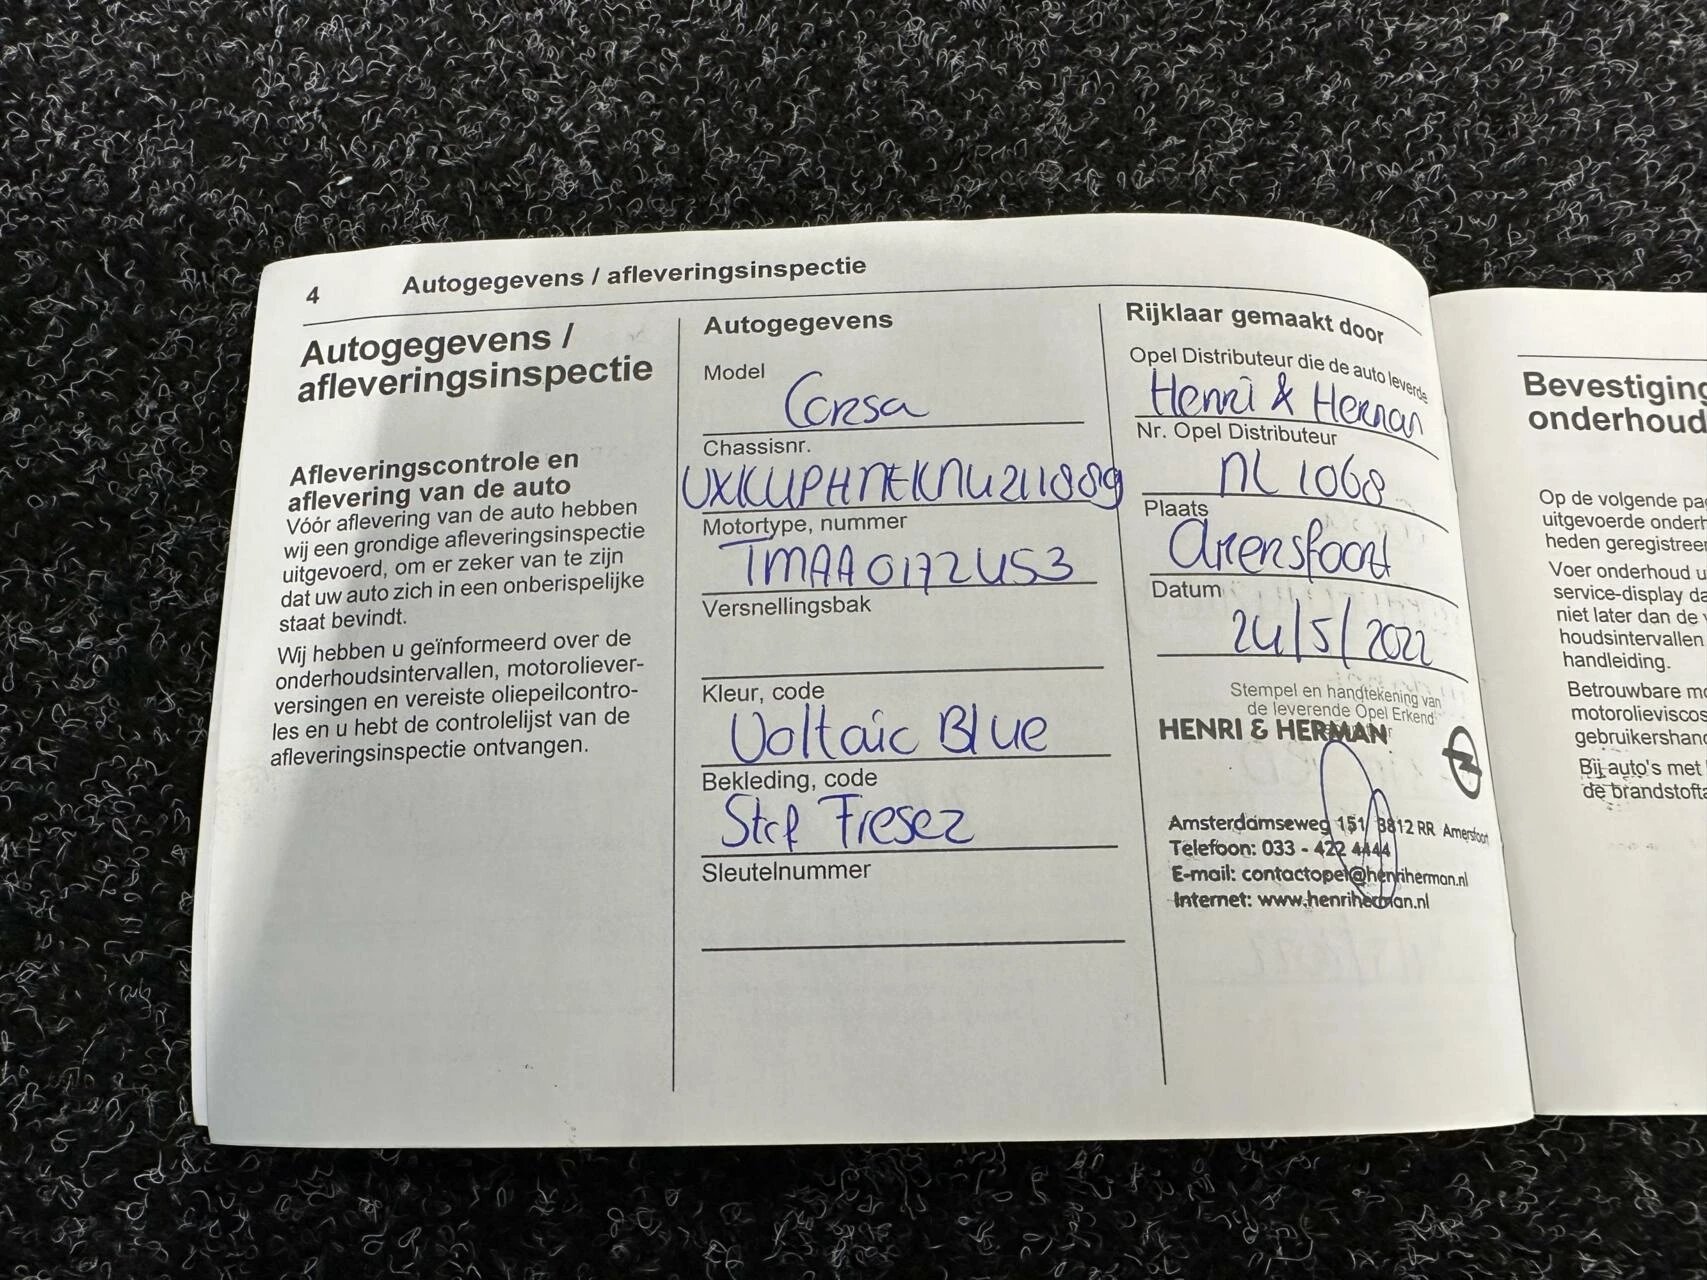 4 Autogegevens / afleveringsinspectie
Autogegevens /
afleveringsinspectie
Afleveringscontrole en
aflevering van de auto
Vóór aflevering van de auto hebben
wij een grondige afleveringsinspectie
uitgevoerd, om er zeker van te zijn
dat uw auto zich in een onberispelijke
staat bevindt.
Wij hebben u geïnformeerd over de
onderhoudsintervallen, motoroliever-
versingen en vereiste oliepeilcontro-
les en u hebt de controlelijst van de
afleveringsinspectie ontvangen.
Autogegevens
Model
Corsa
Chassisnr.
Motortype, nummer
Versnellingsbak
Kleur, code
Voltaic Blue
Bekleding, code
Sleutelnummer
Rijklaar gemaakt door
Opel Distributeur die de auto leverde
Henri & Herman
Nr. Opel Distributeur
NL 1068
Plaats
Datum
24/5/2022
Stempel en handtekening van
de leverende Opel Erkend
HENRI & HERMAN
Amsterdamseweg 151 3812 RR Amersfoort
Telefoon: 033 - 422 4444
E-mail: contactopel@henriherman.nl
Internet: www.henriherman.nl
Bevestiging
onderhoud
Op de volgende
uitgevoerde
heden
Voer onderhoud
service-display
niet later dan de
houdsintervallen
handleiding.
Betrouwbare
Bij auto's met